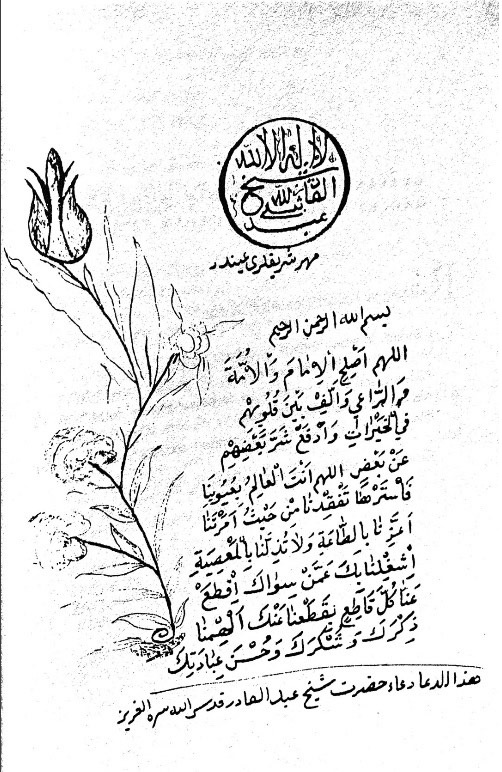 لا إله إلا الله
شيخ
القا
لله
عبد
مهر شريفلرى عينيدر
بسم الله الرحمن الرحيم
اللهم أَصْلِحِ الإِمَامَ وَالأُمَّةَ
وَالرَّاعِي وَأَلِّفْ بَيْنَ قُلُوبِهِمْ
فِي الْخَيْرَاتِ وَادْفَعْ شَرَّ بَعْضِهِمْ
عَنْ بَعْضٍ اللهم أَنْتَ الْعَالِمُ بِعُيُوبِنَا
فَاسْتُرْهَا تَفْقِدُنَا مِنْ حَيْثُ أَمَرْتَنَا
أَعِزَّنَا بِالطَّاعَةِ وَلَا تُذِلَّنَا بِالْمَعْصِيَةِ
اِشْغِلْنَا بِكَ عَمَّنْ سِوَاكَ اِقْطَعْ
عَنَّا كُلَّ قَاطِعٍ يَقْطَعُنَا عَنْكَ أَلْهِمْنَا
ذِكْرَكَ وَشُكْرَكَ وَحُسْنَ عِبَادَتِكَ
هذا الدعا دعاء حضرت شيخ عبد القادر قدس الله سره العزيز